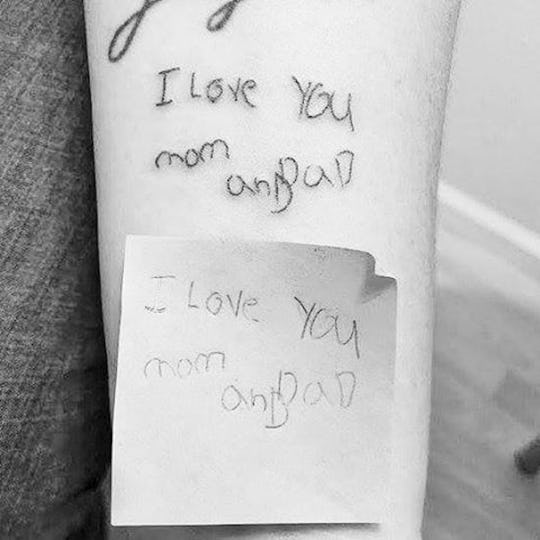 I Love YOU
mom
anDDaD
I Love YOU
mom
anDDaD